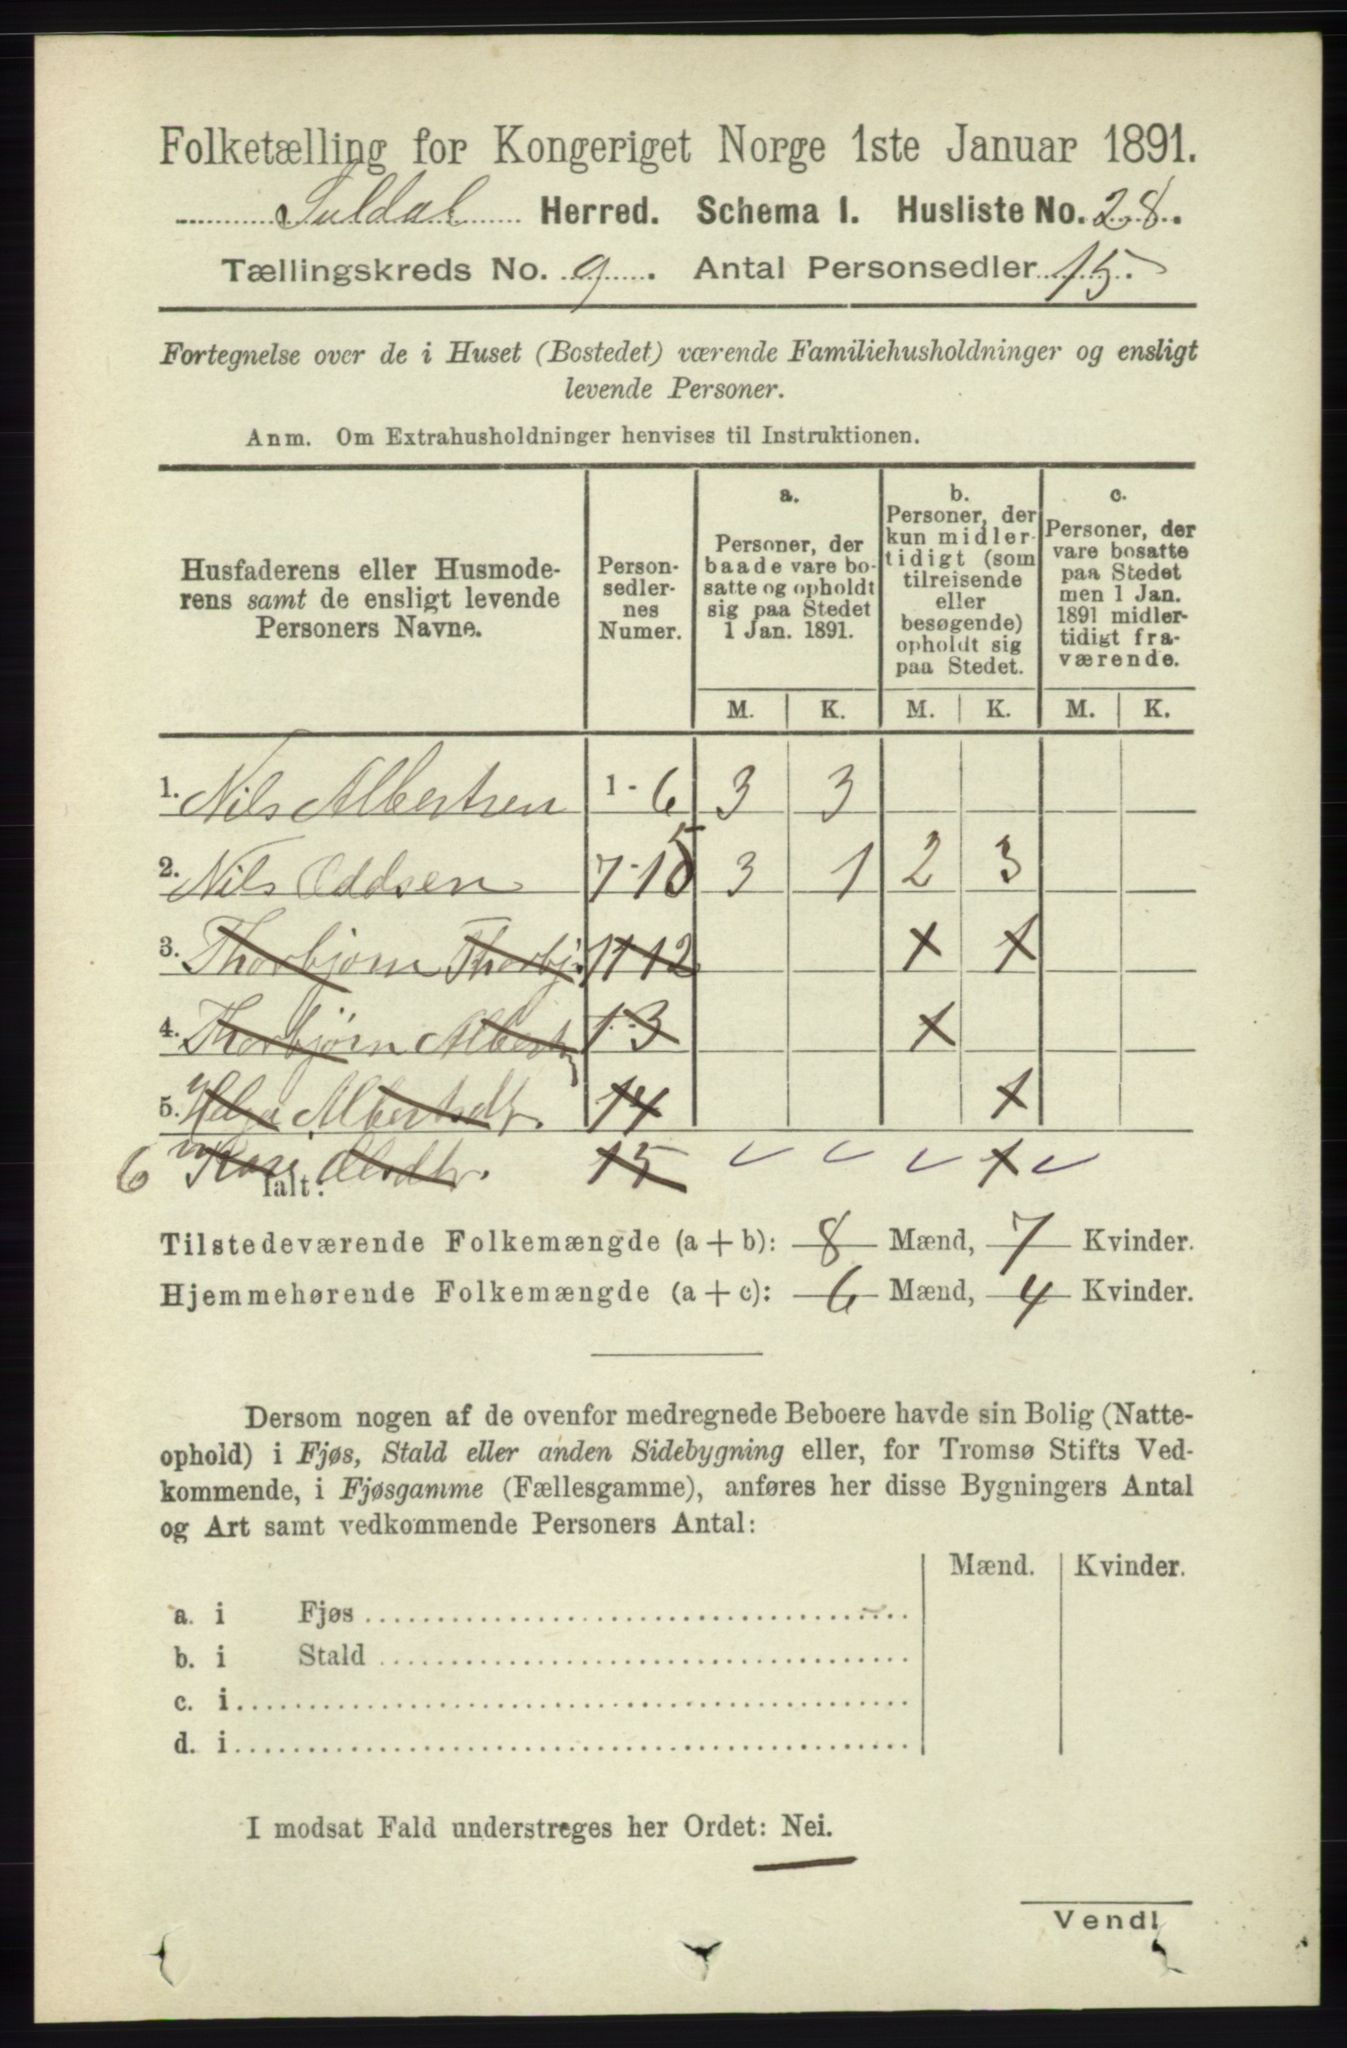 Folketælling for Kongeriget Norge 1ste Januar 1891.
Suldal Herred. Schema I. Husliste No. 28.
Tællingskreds No. 9. Antal Personsedler 15.
Fortegnelse over de i Huset (Bostedet) værende Familiehusholdninger og ensligt
levende Personer.
Anm. Om Extrahusholdninger henvises til Instruktionen.
Husfaderens eller Husmode-
rens samt de ensligt levende
Personers Navne.
Person-
sedler-
nes
Numer.
a.
Personer, der
baade vare bo-
satte og opholdt
sig paa Stedet
1 Jan. 1891.
b.
Personer, der
kun midler-
tidigt (som
tilreisende
eller
besøgende)
opholdt sig
paa Stedet.
c.
Personer, der
vare bosatte
paa Stedet
men 1 Jan.
1891 midler-
tidigt fra-
værende.
M. K. M. K. M. K.
1. Nils Albertsen 1 - 6 3 3
2. Nils Oddsen 7-15 3 1 2 3
3. Thorbjørn Thorbj. 11-12 x x
4. Thorbjørn Albert 13 x
5. Helga Albertsdtr. 14 x
6 Olsdtr. 15 ✓ ✓ ✓ x ✓
Ialt:
Tilstedeværende Folkemængde (a + b): 8 Mænd, 7 Kvinder.
Hjemmehørende Folkemængde (a + c): 6 Mænd, 4 Kvinder.
Dersom nogen af de ovenfor medregnede Beboere havde sin Bolig (Natte-
ophold) i Fjøs, Stald eller anden Sidebygning eller, for Tromsø Stifts Ved-
kommende, i Fjøsgamme (Fællesgamme), anføres her disse Bygningers Antal
og Art samt vedkommende Personers Antal:
Mænd. Kvinder.
a. i Fjøs
b. i Stald
c. i
d. i
I modsat Fald understreges her Ordet: Nei.
Vend!